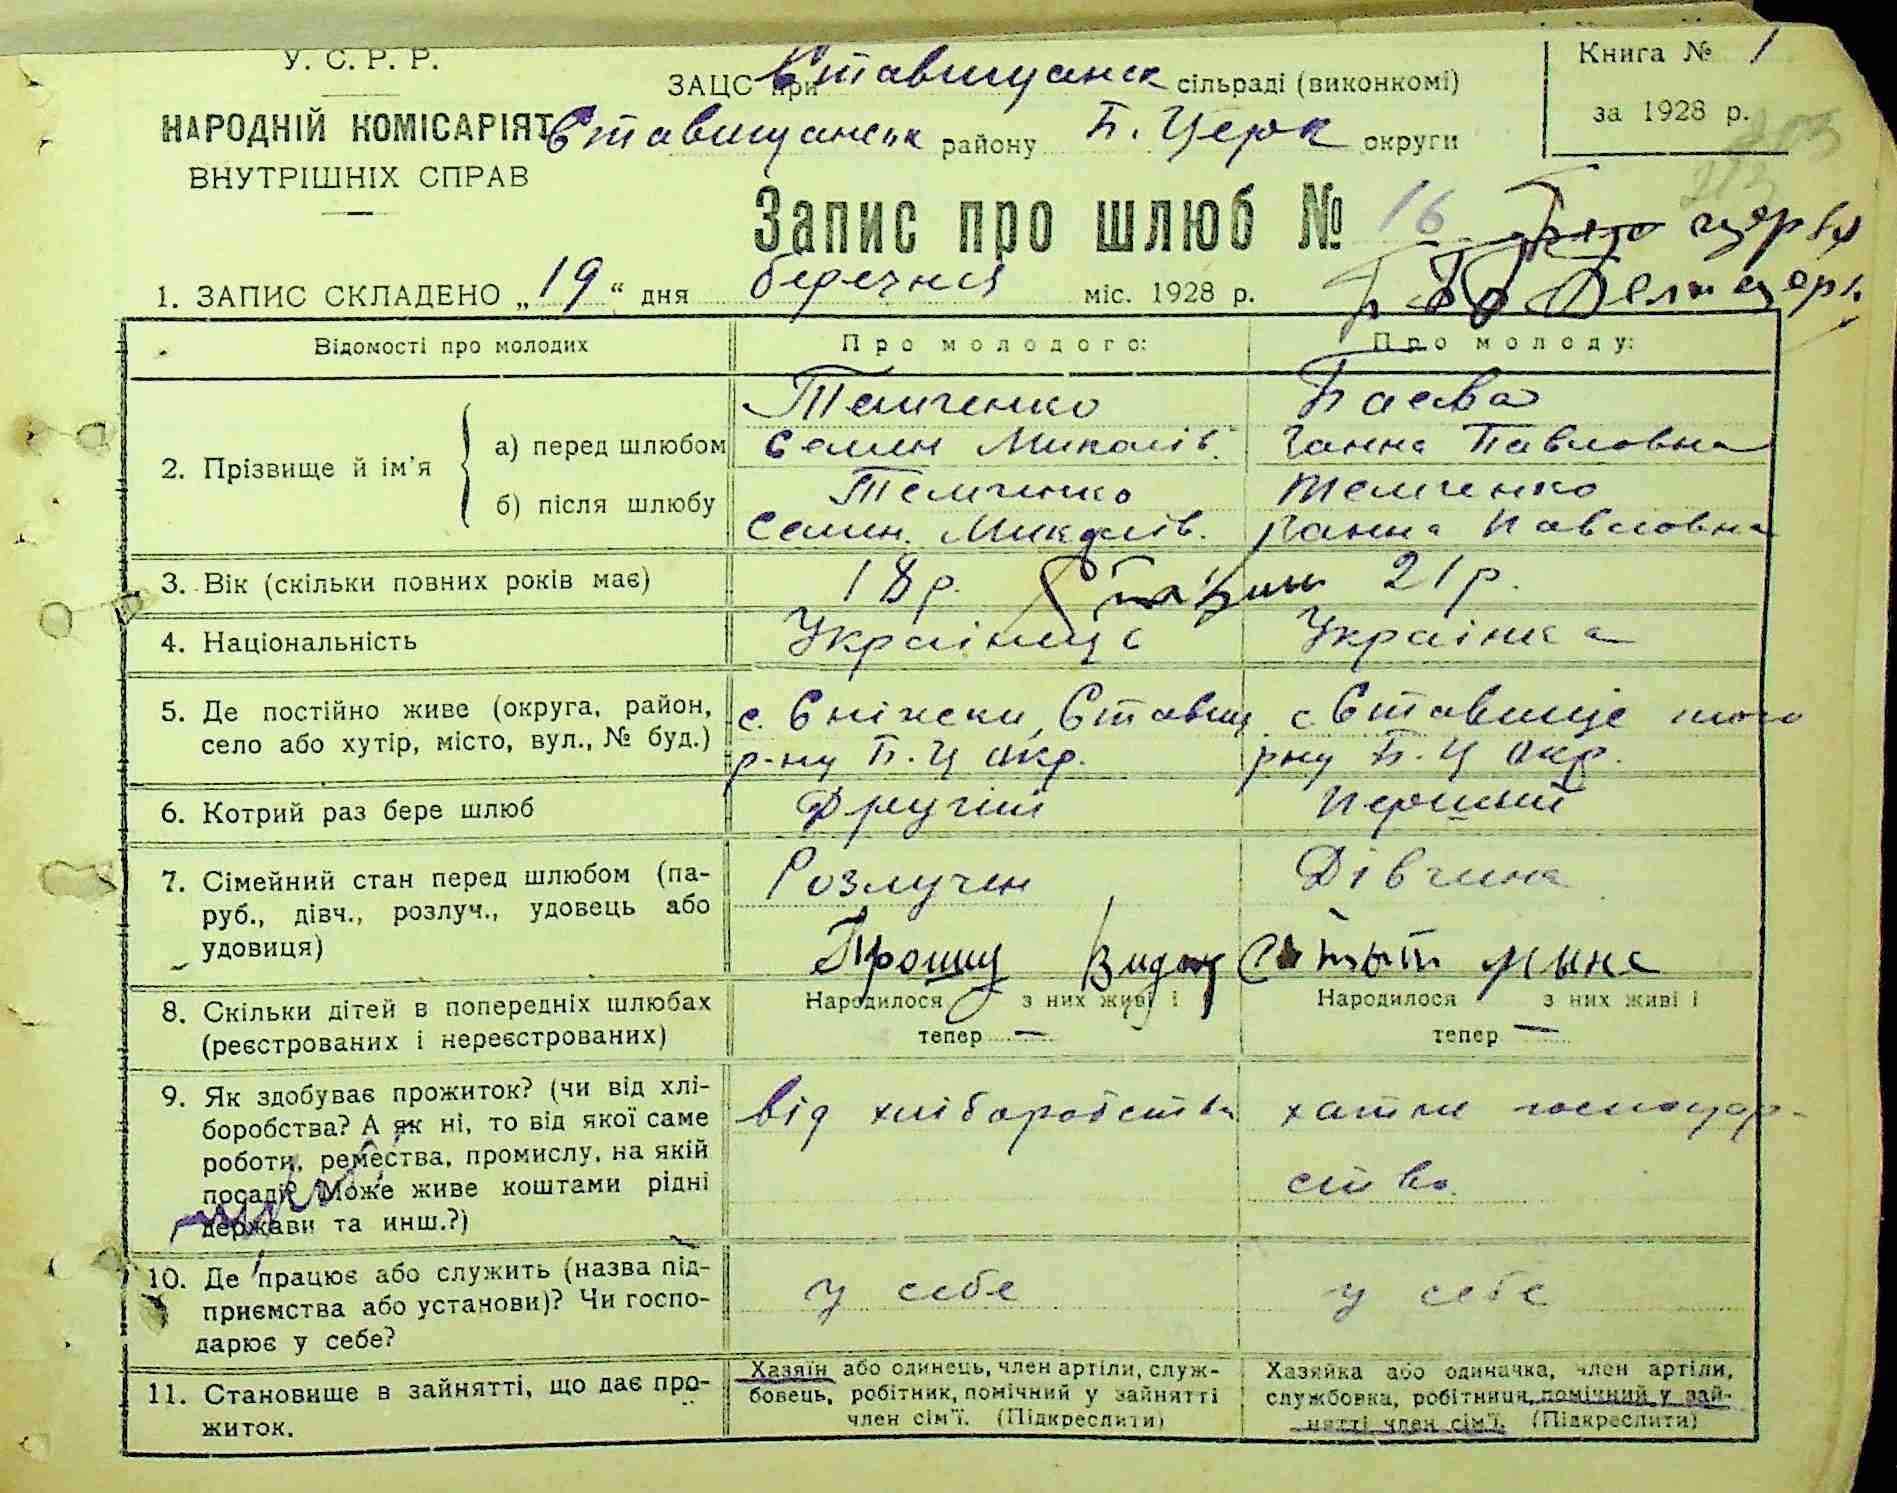 У. С. Р. Р.
НАРОДНІЙ КОМІСАРІЯТ
ВНУТРІШНІХ СПРАВ
ЗАЦС при Ставищанск сільраді (виконкомі)
Ставищанськ району Б. Церк округи
Книга № 1
за 1928 р.
Запис про шлюб № 16
1. ЗАПИС СКЛАДЕНО „19“ дня березня міс. 1928 р.
Відомості про молодих
Про молодого:
Про молоду:
2. Прізвище й ім'я
а) перед шлюбом
Темченко
Семен Миколів.
Баєва
Ганна Павловна
б) після шлюбу
Темченко
Семен. Миколів.
Темченко
Ганна Павловна
3. Вік (скільки повних років має)
18 р.
21 р.
4. Національність
Українець
Українка
5. Де постійно живе (округа, район,
село або хутір, місто, вул., № буд.)
с. Сніжки, Ставищ
р-ну Б. Ц окр.
с Ставище того
рну Б. Ц окр.
6. Котрий раз бере шлюб
Другий
Перший
7. Сімейний стан перед шлюбом (па-
руб., дівч., розлуч., удовець або
удовиця)
Розлучен
Дівчина
Прошу
8. Скільки дітей в попередніх шлюбах
(реєстрованих і нереєстрованих)
Народилося з них живі і
тепер —
Народилося з них живі і
тепер —
9. Як здобуває прожиток? (чи від хлі-
боробства? А як ні, то від якої саме
роботи, ремества, промислу, на якій
посаді? Може живе коштами рідні
держави та инш.?)
від хліборобства
хатне господар-
ство.
10. Де працює або служить (назва під-
приємства або установи)? Чи госпо-
дарює у себе?
у себе
у себе
11. Становище в зайнятті, що дає про-
житок.
Хазяїн або одинець, член артіли, служ-
бовець, робітник, помічний у зайнятті
член сім'ї. (Підкреслити)
Хазяйка або одиначка, член артіли,
службовка, робітниця, помічний у зай-
нятті член сім'ї. (Підкреслити)